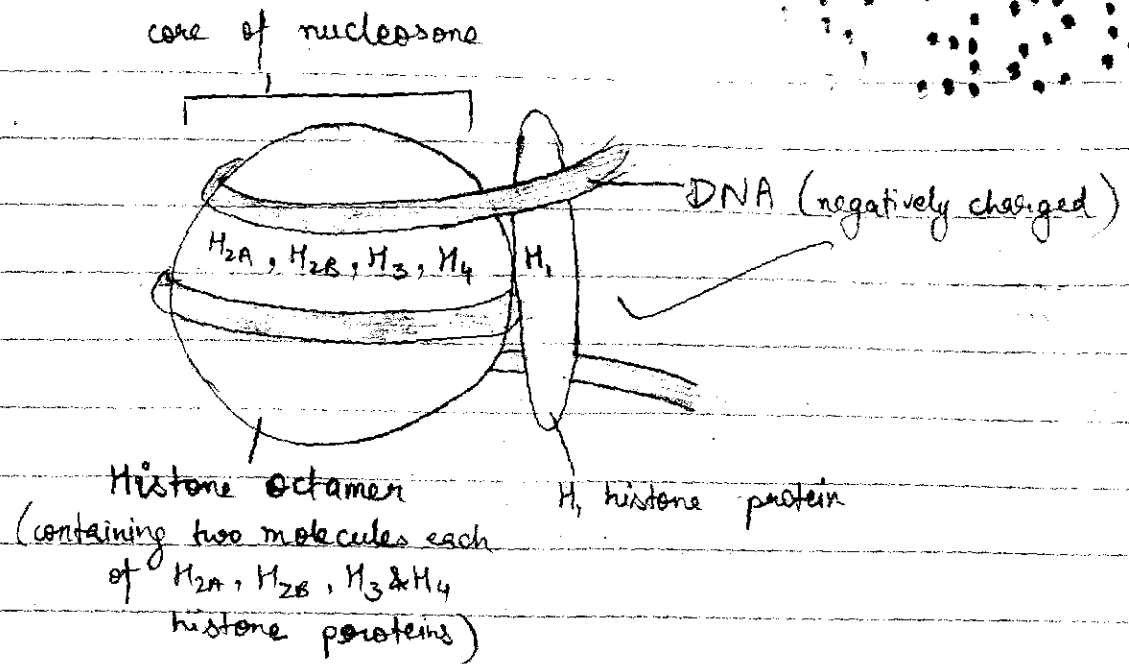 core of nucleosone
DNA (negatively charged)
H2A, H2B, H3, H4
H1
Histone octamer
(containing two molecules each
of H2A, H2B, H3 & H4
histone proteins)
H1 histone protein